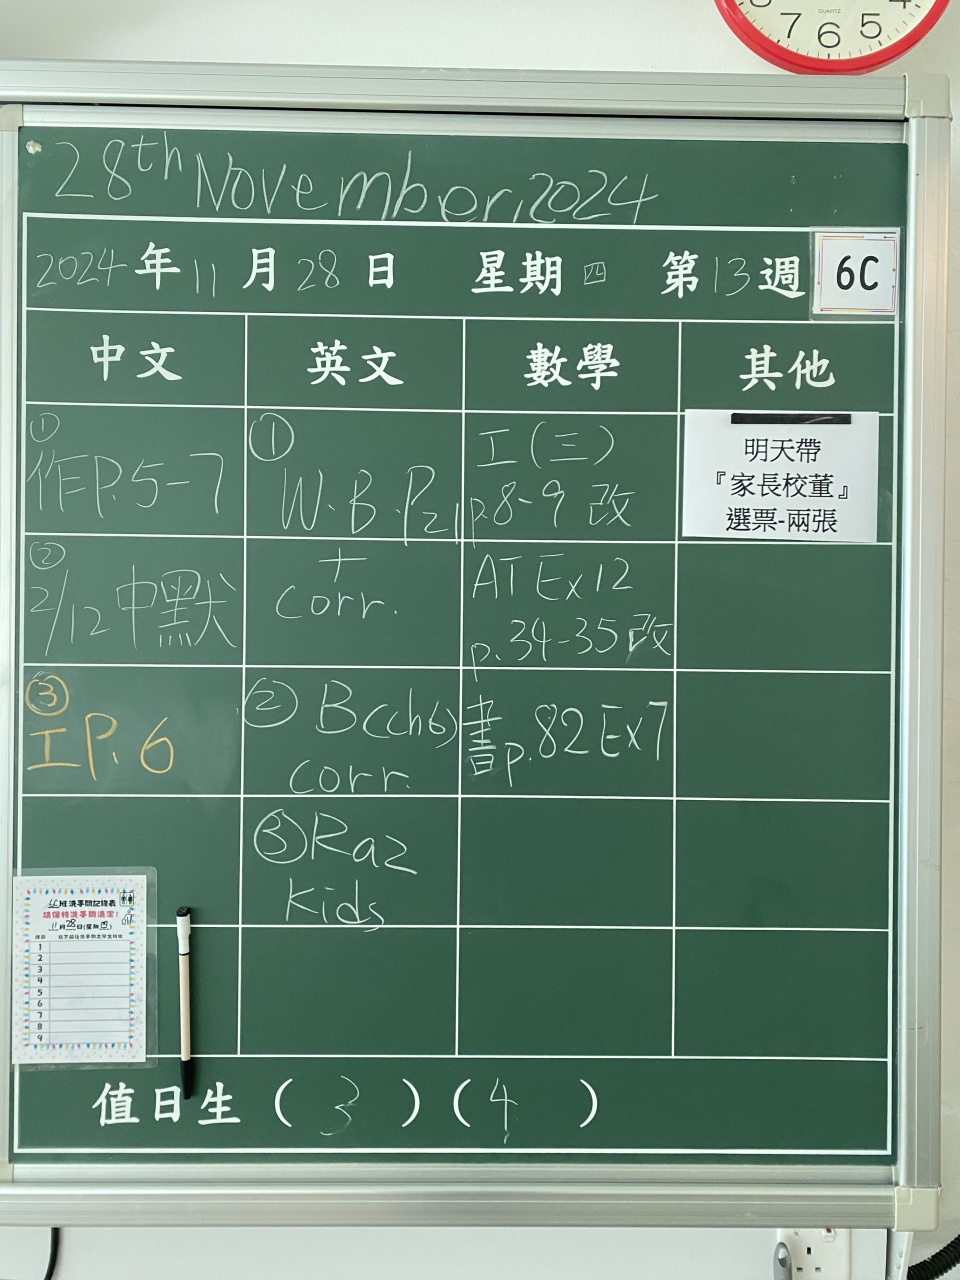 7 6 5
QUARTZ
28th November, 2024
2024年11月28日 星期四 第13週 6C
中文 英文 數學 其他
①
作P.5-7
①
W.B.P21
工(三)
p.8-9 改
明天帶
『家長校董』
選票-兩張
②
2/12 中默
+
corr.
AT Ex12
p.34-35改
③
工P.6
② B(ch6)
corr.
書p.82 Ex7
③Raz
Kids
6C班洗手間記錄表
請保持洗手間清潔!
11月28日(星期四)
1
2
3
4
5
6
7
8
9
值日生(3)(4)